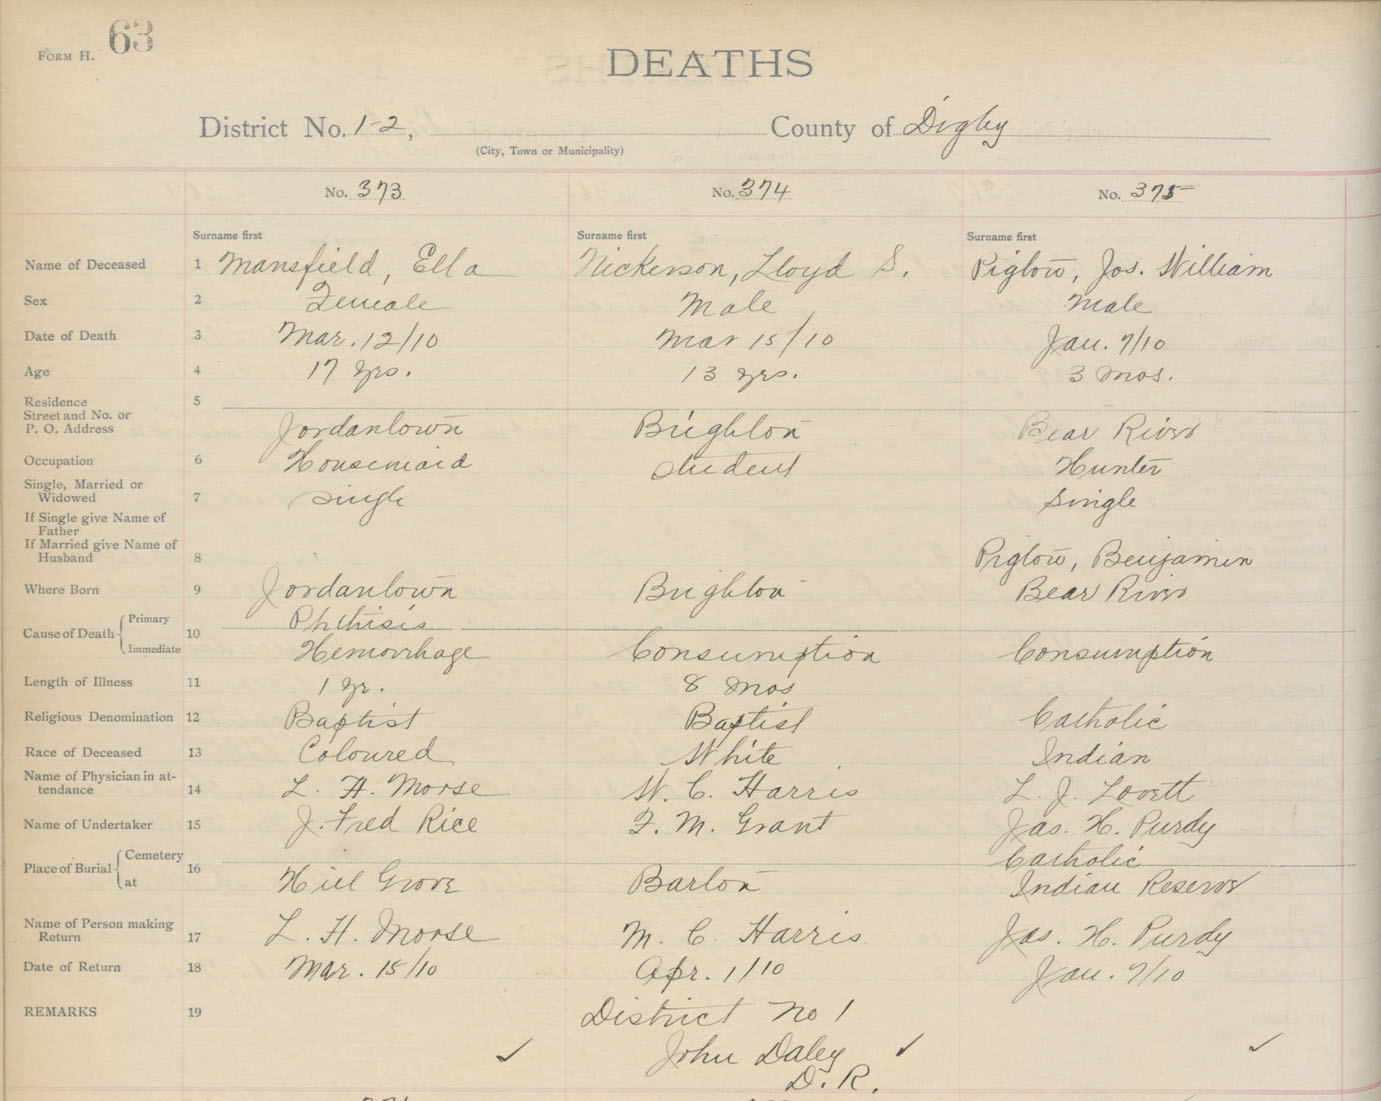 Form H. 63
DEATHS
District No. 1-2, County of Digby
(City, Town or Municipality)
No. 373 No. 374 No. 375
Surname first Surname first Surname first
Name of Deceased 1 Mansfield, Ella Nickerson, Lloyd S. Piglow, Jos. William
Sex 2 Female Male Male
Date of Death 3 Mar. 12/10 Mar 15/10 Jan. 7/10
Age 4 17 yrs. 13 yrs. 3 mos.
Residence 5
Street and No. or
P. O. Address Jordantown Brighton Bear River
Occupation 6 Housemaid Student Hunter
Single, Married or
Widowed 7 Single Single
If Single give Name of
Father
If Married give Name of
Husband 8 Piglow, Benjamin
Where Born 9 Jordantown Brighton Bear River
Cause of Death Primary 10 Phthisis
Immediate Hemorrhage Consumption Consumption
Length of Illness 11 1 yr. 8 Mos
Religious Denomination 12 Baptist Baptist Catholic
Race of Deceased 13 Coloured White Indian
Name of Physician in at-
tendance 14 L. H. Morse W. C. Harris L. J. Lovett
Name of Undertaker 15 J. Fred Rice F. M. Grant Jas. H. Purdy
Place of Burial Cemetery 16 Catholic
at Hill Grove Barton Indian Reserve
Name of Person making
Return 17 L. H. Morse M. C. Harris Jas. H. Purdy
Date of Return 18 Mar. 15/10 Apr. 1/10 Jan. 7/10
REMARKS 19 District No 1
✓ John Daley ✓ ✓
D. R.